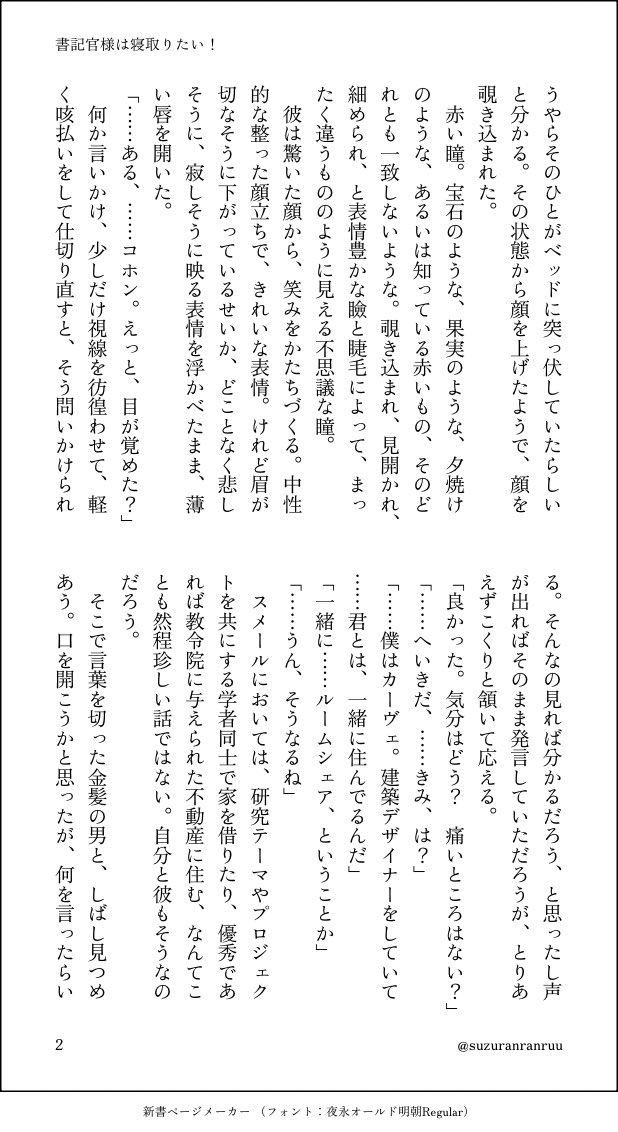 書記官様は寝取りたい！
うやらそのひとがベッドに突っ伏していたらしい
と分かる。その状態から顔を上げたようで、顔を
覗き込まれた。
　赤い瞳。宝石のような、果実のような、夕焼け
のような、あるいは知っている赤いもの、そのど
れとも一致しないような。覗き込まれ、見開かれ、
細められ、と表情豊かな瞼と睫毛によって、まっ
たく違うもののように見える不思議な瞳。
　彼は驚いた顔から、笑みをかたちづくる。中性
的な整った顔立ちで、きれいな表情。けれど眉が
切なそうに下がっているせいか、どことなく悲し
そうに、寂しそうに映る表情を浮かべたまま、薄
い唇を開いた。
「……ある、……コホン。えっと、目が覚めた？」
　何か言いかけ、少しだけ視線を彷徨わせて、軽
く咳払いをして仕切り直すと、そう問いかけられ
る。そんなの見れば分かるだろう、と思ったし声
が出ればそのまま発言していただろうが、とりあ
えずこくりと頷いて応える。
「良かった。気分はどう？　痛いところはない？」
「……へいきだ、……きみ、は？」
「……僕はカーヴェ。建築デザイナーをしていて
……君とは、一緒に住んでるんだ」
「一緒に……ルームシェア、ということか」
「……うん、そうなるね」
　スメールにおいては、研究テーマやプロジェク
トを共にする学者同士で家を借りたり、優秀であ
れば教令院に与えられた不動産に住む、なんてこ
とも然程珍しい話ではない。自分と彼もそうなの
だろう。
　そこで言葉を切った金髪の男と、しばし見つめ
あう。口を開こうかと思ったが、何を言ったらい
2
@suzuranranruu
新書ページメーカー（フォント：夜永オールド明朝Regular）